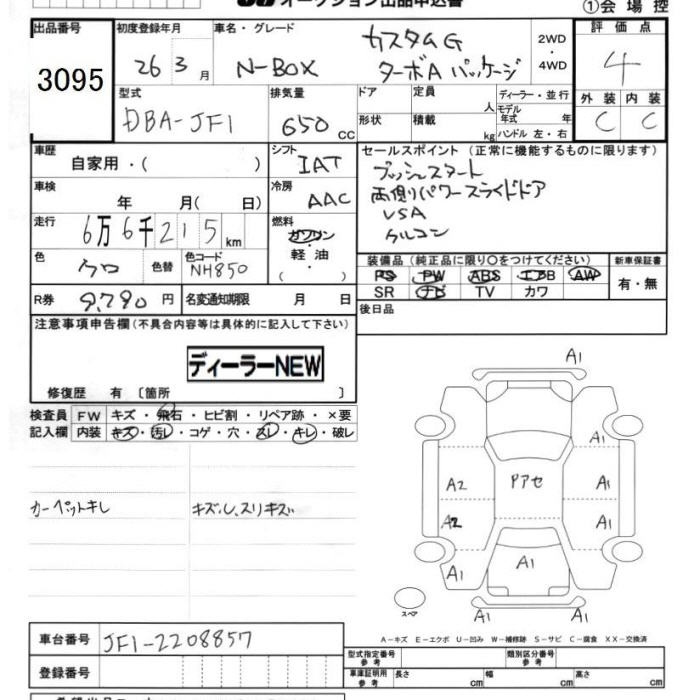 オークション出品申込書
①会場控
出品番号 初度登録年月 車名・グレード 評価点
3095
26 3 月
N-BOX
カスタムG
ターボA パッケージ
2WD
・
4WD
4
外装 内装
C C
型式 排気量 ドア 定員 人 ディーラー・並行
DBA-JF1
650 CC
形状 積載 kg モデル年式 年
ハンドル 左・右
車歴 自家用・( )
シフト IAT
セールスポイント (正常に機能するものに限ります)
プッシュスタート
両側パワースライドドア
VSA
クルコン
車検 年 月( 日)
冷房 AAC
走行 6万6千215km
燃料 ガソリン
・
軽油
・
( )
色 クロ 色替 色コード NH850
装備品 (純正品に限り○をつけてください) 新車保証書
PS PW ABS エアB AW
SR ナビ TV カワ
有・無
R券 9,790 円 名変通知期限 月 日
後日品
注意事項申告欄(不具合内容等は具体的に記入して下さい)
ディーラーNEW
修復歴 有 〔箇所 〕
検査員 FW キズ・飛石・ヒビ割・リペア跡・×要
記入欄 内装 キズ・汚レ・コゲ・穴・スレ・キレ・破レ
カーペットキレ
キズ、し、スリキズ
A1
A1
A2 Pアセ A1
A2 A1
A1
A1 A1
スペア
A1 A1
A-キズ E-エクボ U-凹み W-補修跡 S-サビ C-腐食 XX-交換済
車台番号 JF1-2208857
型式指定番号 参考 類別区分番号 参考
登録番号
車庫証明用 参考 長さ cm 幅 cm 高さ cm